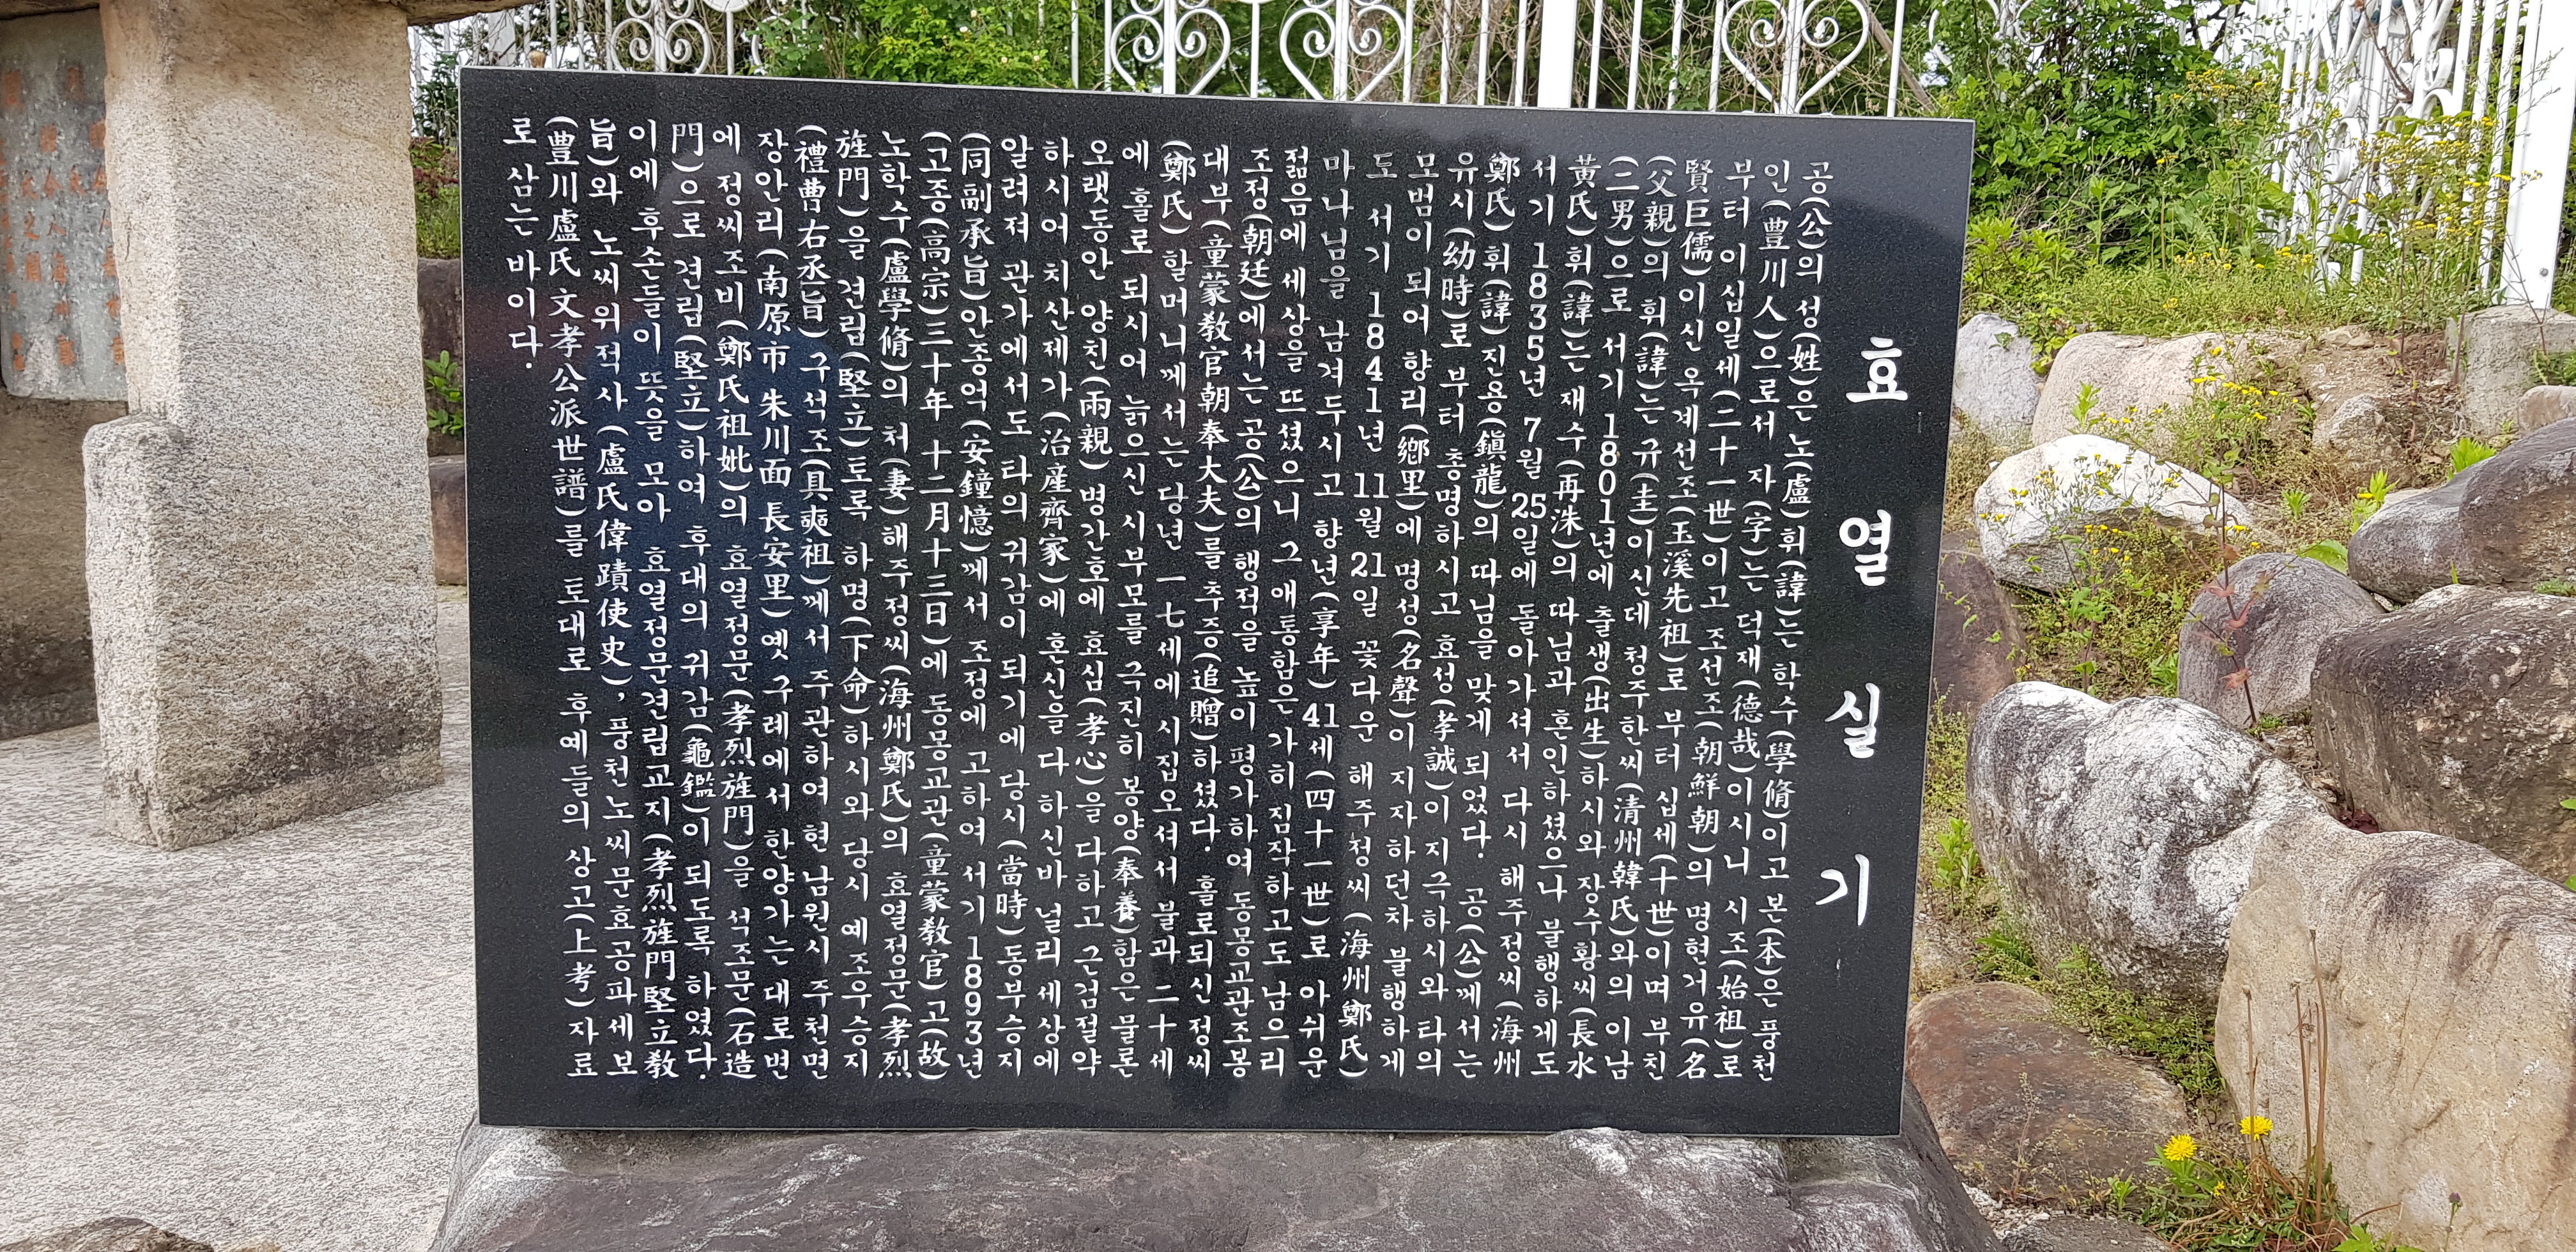 효열실기
공(公)의 성(姓)은 노(盧)휘(諱)는 학수(學脩)이고 본(本)은 풍천
인(豊川人)으로서 자(字)는 덕재(德哉)이시니 시조(始祖)로
부터 이십일세(二十一世)이고 조선조(朝鮮朝)의 명현거유(名
賢巨儒)이신 옥계선조(玉溪先祖)로 부터 십세(十世)이며 부친
(父親)의 휘(諱)는 규(圭)이신데 청주한씨(清州韓氏)와의 이남
(二男)으로 서기 1801년에 출생(出生)하시와 장수황씨(長水
黃氏)휘(諱)는 재수(再洙)의 따님과 혼인하셨으나 불행하게도
서기 1835년 7월 25일에 돌아가셔서 다시 해주정씨(海州
鄭氏)휘(諱)진용(鎭龍)의 따님을 맞게 되었다. 공(公)께서는
유시(幼時)로 부터 총명하시고 효성(孝誠)이 지극하시와 타의
모범이 되어 향리(鄕里)에 명성(名聲)이 지자하던차 불행하게
도 서기 1841년 11월 21일 꽃다운 해주정씨(海州鄭氏)
마나님을 남겨두시고 향년(享年)41세(四十一世)로 아쉬운
젊음에 세상을 뜨셨으니 그 애통함은 가히 짐작하고도 남으리
조정(朝廷)에서는 공(公)의 행적을 높이 평가하여 동몽교관조봉
대부(童蒙教官朝奉大夫)를 추증(追贈)하셨다. 홀로되신 정씨
(鄭氏)할머니께서는 당년 一七세에 시집오셔서 불과 二十세
에 홀로 되시어 늙으신 시부모를 극진히 봉양(奉養)함은 물론
오랫동안 양친(兩親)병간호에 효심(孝心)을 다하고 근검절약
하시어 치산제가(治産齊家)에 혼신을 다 하신바 널리 세상에
알려져 관가에서도 타의 귀감이 되기에 당시(當時)동부승지
(同副承旨)안종억(安鐘憶)께서 조정에 고하여 서기 1893년
(고종(高宗)三十年 十二月十三日)에 동몽교관(童蒙敎官)고(故)
노학수(盧學脩)의 처(妻)해주정씨(海州鄭氏)의 효열정문(孝烈
旌門)을 견립(堅立)토록 하명(下命)하시와 당시 예조우승지
(禮曹右丞旨)구석조(具奭祖)께서 주관하여 현 남원시 주천면
장안리(南原市 朱川面 長安里)옛 구례에서 한양가는 대로변
에 정씨조비(鄭氏祖妣)의 효열정문(孝烈旌門)을 석조문(石造
門)으로 견립(堅立)하여 후대의 귀감(龜鑑)이 되도록 하였다.
이에 후손들이 뜻을 모아 효열정문견립교지(孝烈旌門堅立敎
旨)와 노씨위적사(盧氏偉蹟使史),풍천노씨문효공파세보
(豊川盧氏文孝公派世譜)를 토대로 후예들의 상고(上考)자료
로 삼는 바이다.